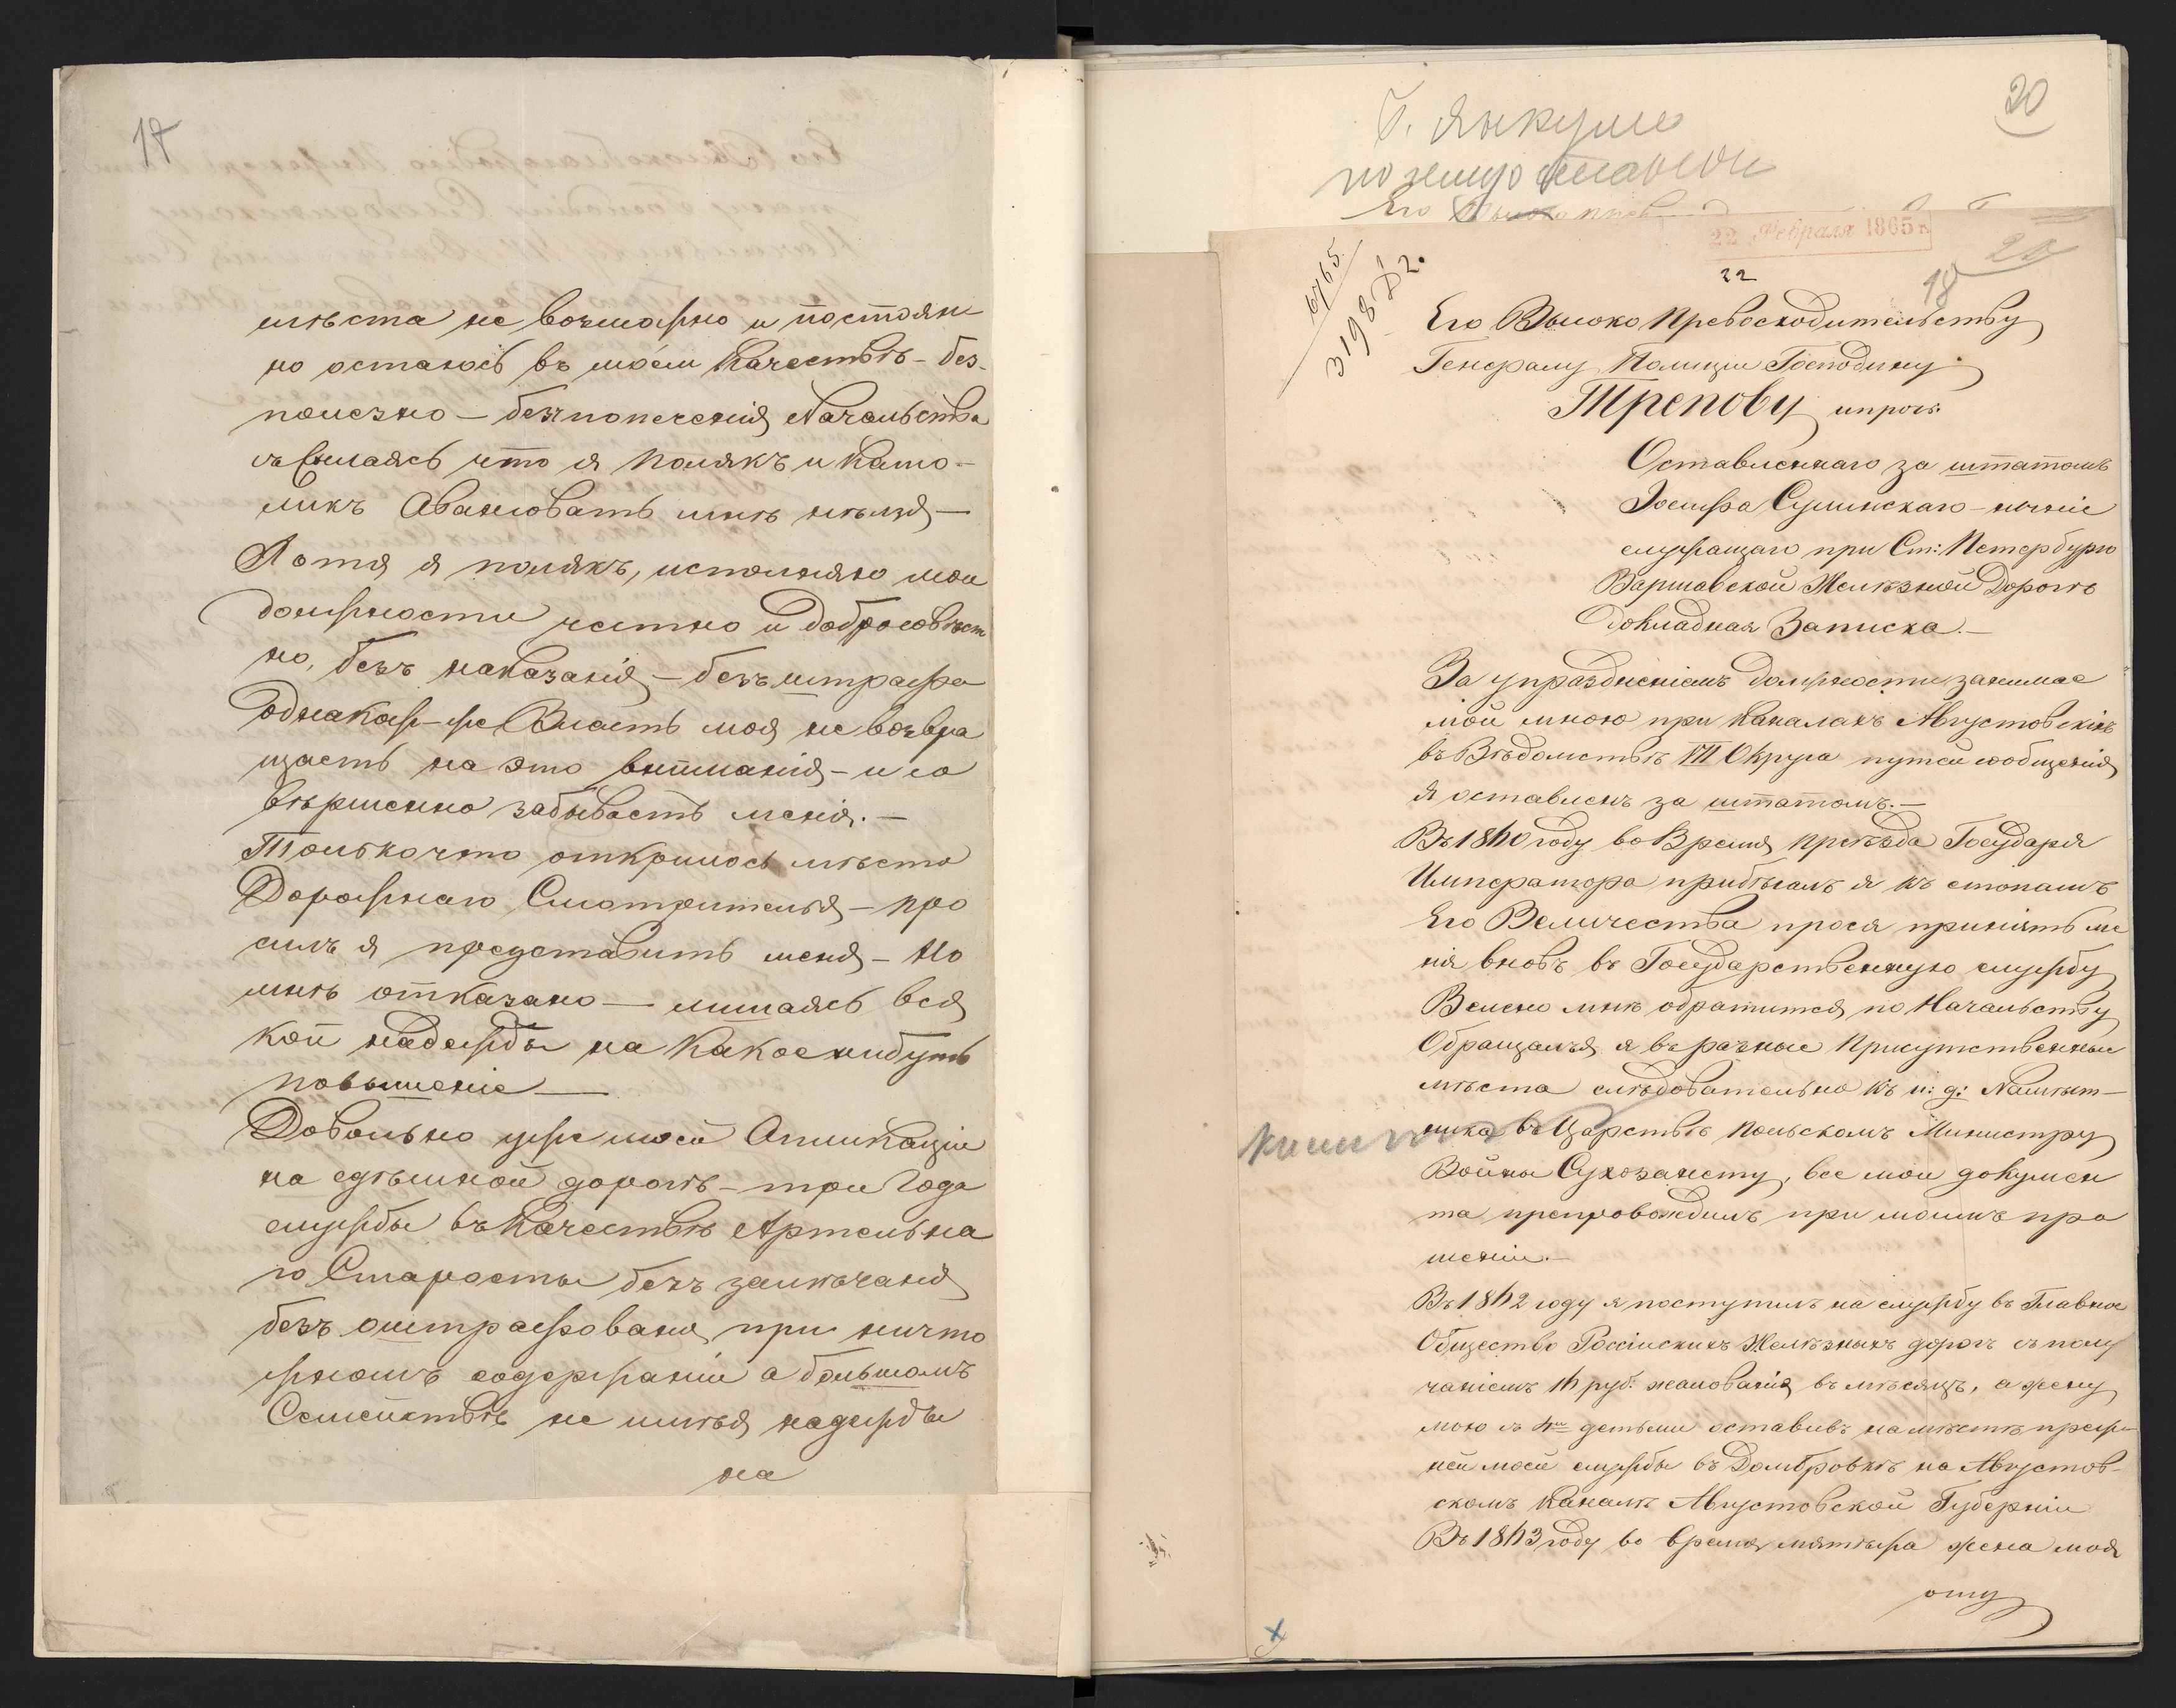 17
мѣста не возможно и постоян
но остаюсь въ моем качествѣ - без-
полезно - безъ попеченія Начальства
ссылаясь что я Полякъ и Като-
ликъ Авансовать мнѣ нельзя —
Хотя я полякъ, исполняю мои
должности честно и добросовѣст
но, безъ наказанія, - безъ штрафа
однакаж-же Власть моя не возвра
щаетъ на это вниманія - и со
вѣршенно забываетъ меня. —
Только что открилось мѣсто
Дорожнаго Смотрителя - про
силъ я представить меня - Но
мнѣ отказано — лишаясь вся
кой надежды на какое нибудь
повышеніе —
Довольно уже моей Апликаціи
на сдѣшной дорогѣ - три года
службы въ качествѣ Артельна
го Старосты безъ замѣчанія
безъ оштрафованія при ничто
жномъ содержаніи а большомъ
Семействѣ не имѣя надежды
на
20
по
Его
22 Февраля 1865 г.
22
18
3198
Его Высоко Превосходительству
Генералу Полиции Господину
Трепову и проч.
Оставленнаго за штатомъ
Іосифа Сулинскаго - нынѣ
служащаго при Ст: Петербурго
Варшавской Желѣзной Дорогѣ
Докладная Записка. —
За упраздненіемъ должности занимае
мой мною при Каналахъ Августовскихъ
въ Вѣдомствѣ VIII Округа путей сообщенія
я оставленъ за штатомъ. —
Въ 1860 году во Время Проѣзда Государя
Императора прибѣгалъ я къ стопамъ
Его Величества прося принять ме
ня вновъ въ Государственную службу
Велено мнѣ обратится по Начальству
Обращался я въ разные Присутственные
мѣста слѣдовательно къ и: д: Намѣст-
ника въ Царствѣ Польскомъ Министру
Войны Сухозанету, все мои докумен
та препровождилъ при моимъ про
шеніи. —
Въ 1862 году я поступилъ на службу въ Главное
Общество Россійскихъ Желѣзныхъ дорогъ съ полу
чаніемъ 16 руб. жалованія въ мѣсяцъ, а жену
мою съ 4ми детьми оставивъ на мѣстѣ преж-
ней моей службы въ Домбровкѣ на Августов-
скомъ Каналѣ Августовской Губерніи
Въ 1863 году во время мятѣжа жена моя
оту